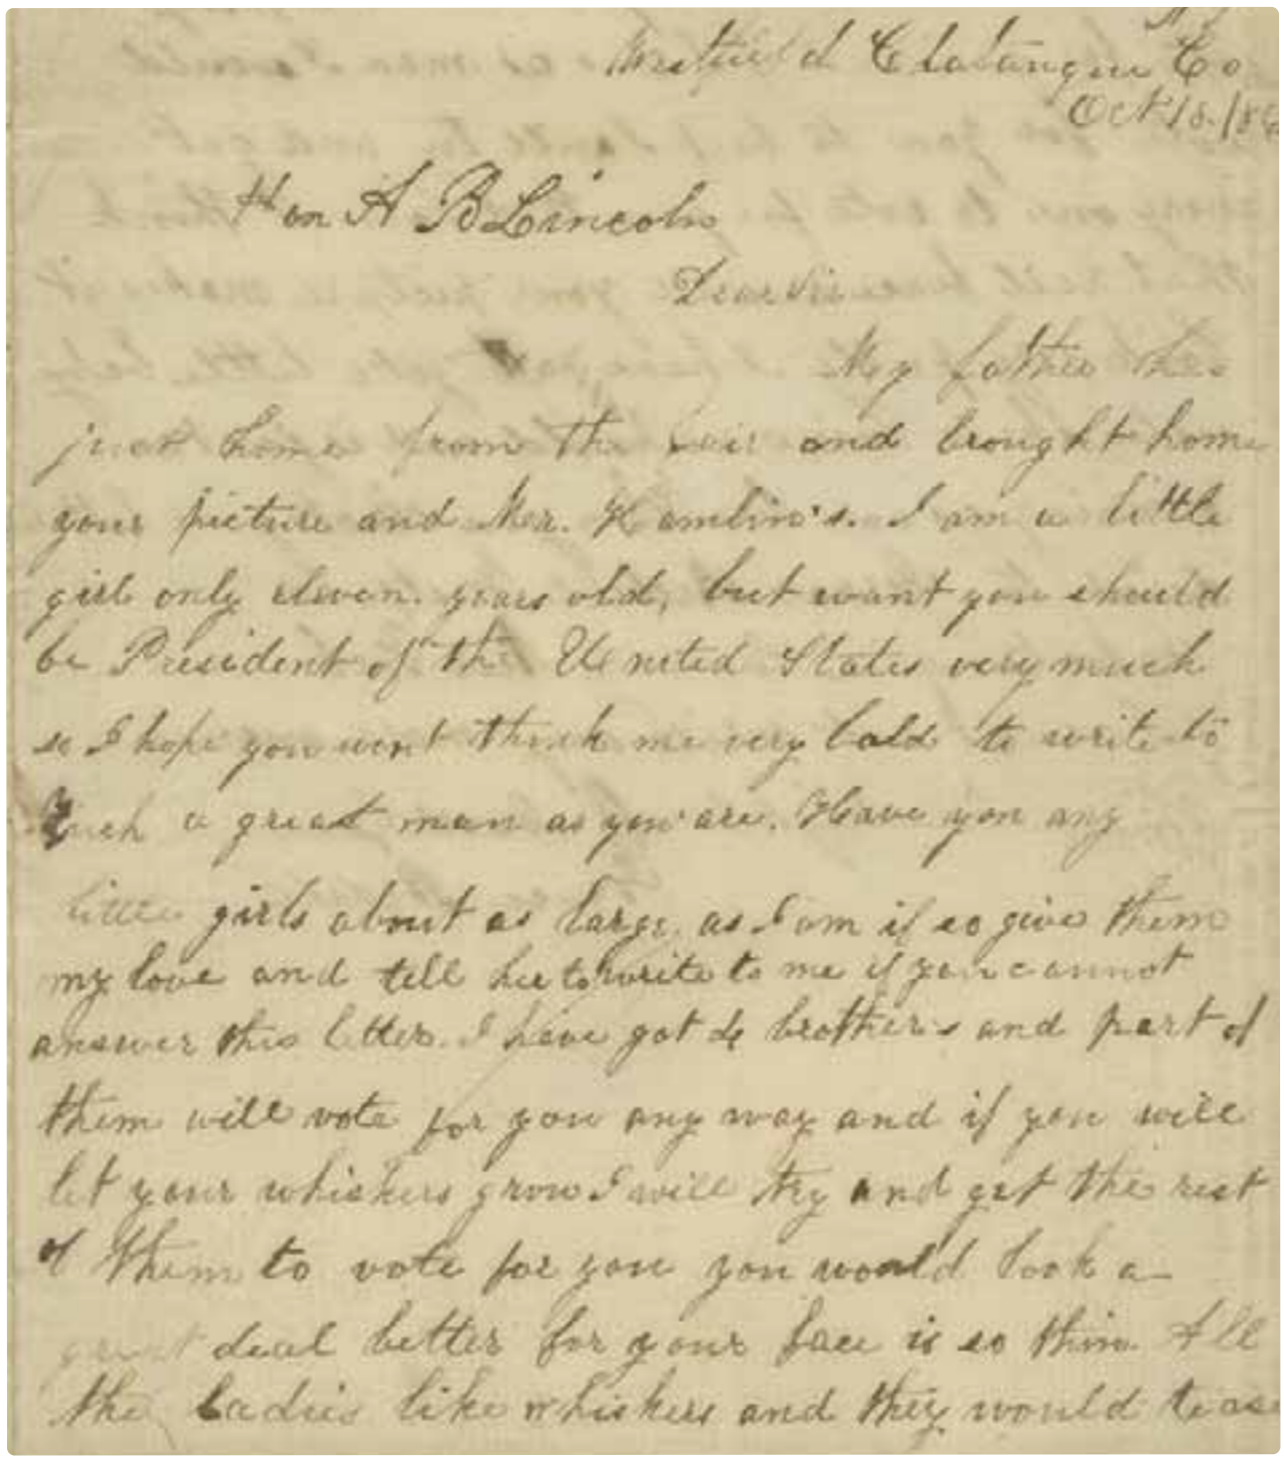 N Y
Westfield Chatauque Co
Oct 18. 186
Hon A B Lincoln
Dear Sir
My father has
just home from the fair and brought home
your picture and Mr. Hamlin's. I am a little
girl only eleven. years old, but want you should
be President of the United States very much
so I hope you wont think me very bold to write to
such a great man as you are. Have you any
little girls about as large as I am if so give them
my love and tell her to write to me if you cannot
answer this letter. I have got 4 brothers and part of
them will vote for you any way and if you will
let your whiskers grow I will try and get the rest
of them to vote for you you would look a
great deal better for your face is so thin. All
the ladies like whiskers and they would tease